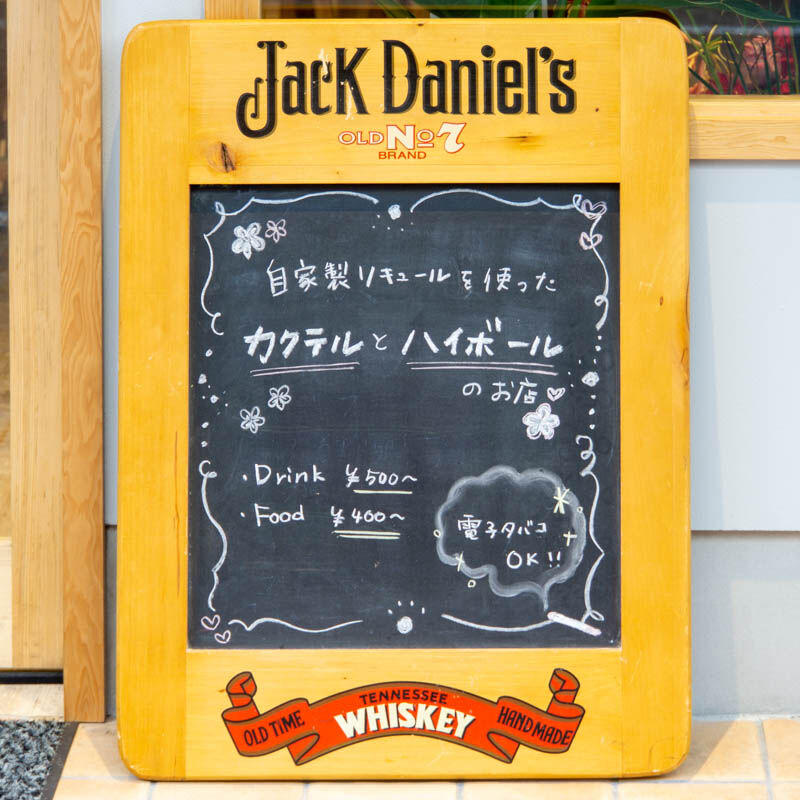 Jack Daniel's
OLD No 7
BRAND
自家製リキュールを使った
カクテルとハイボール
のお店
・Drink ¥500〜
・Food ¥400〜
電子タバコ
OK!!
TENNESSEE
OLD TIME WHISKEY HANDMADE